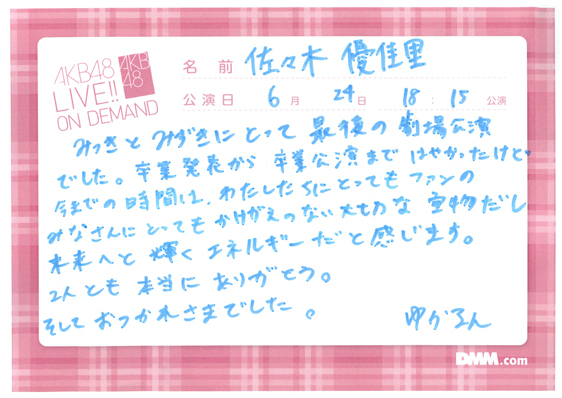 AKB48
LIVE!!
ON DEMAND
AKB
48
名前 佐々木 優佳里
公演日 6月 24日 18:15 公演
みっきと みずきにとって 最後の 劇場公演
でした。卒業発表から 卒業公演まで はやかったけど。
今までの時間は、わたしたちにとっても ファンの
みなさんにとっても かけがえのない 大切な 宝物だし
未来へと 輝く エネルギーだと 感じます。
2人とも 本当に ありがとう。
そして おつかれさまでした。
ゆかるん
DMM.com